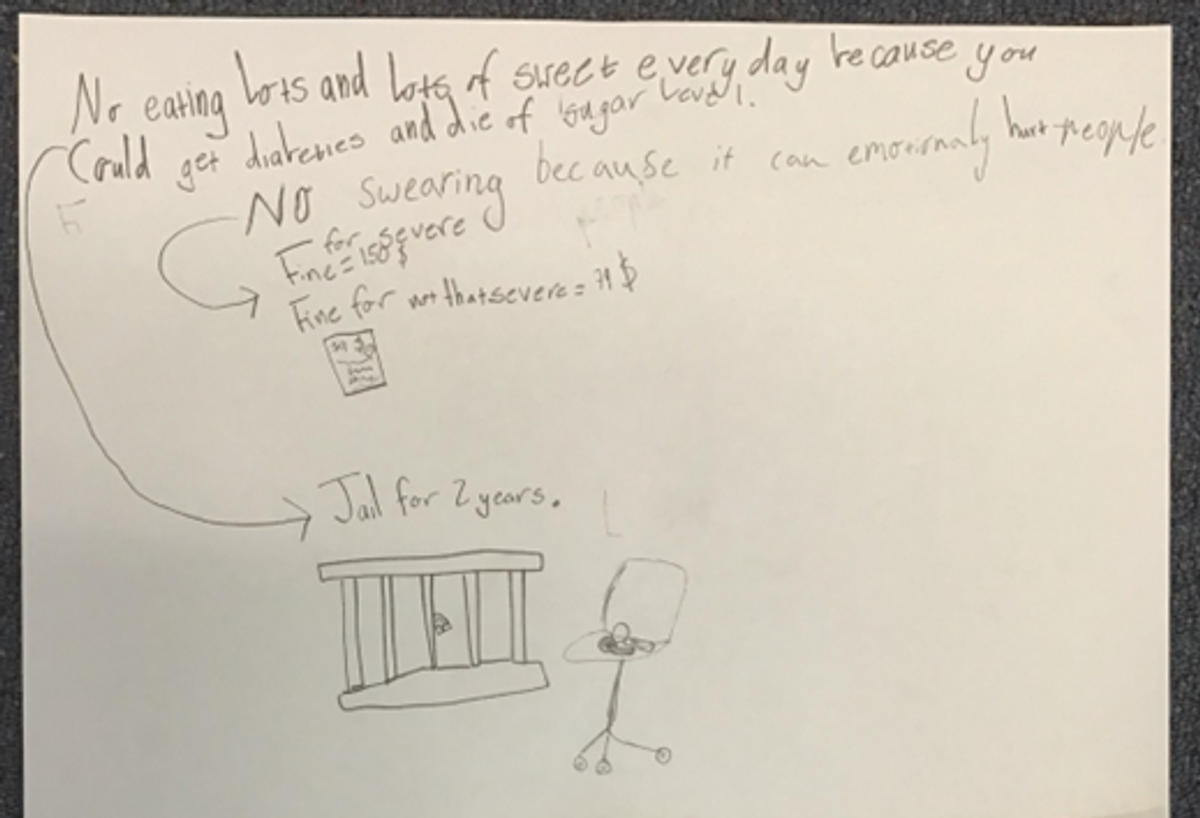 No eating lots and lots of sweet every day because you
Could get diabeties and die of sugar level.
NO swearing because it can emotionaly hurt people.
for severe
Fine = 150 $
Fine for not that severe = 79 $
Jail for 2 years.